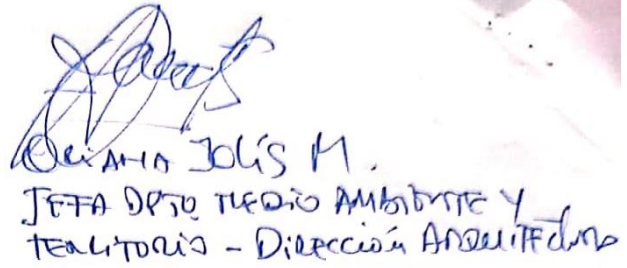 Oriana Jolís M.
JEFA DPTO MEDIO AMBIENTE Y
TERRITORIO - Dirección Arquitectura